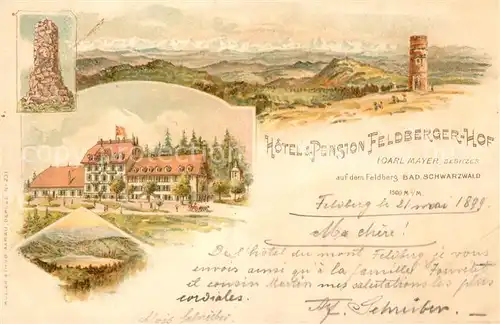 HÔTEL & PENSION FELDBERGER-HOF
(CARL MAYER, BESITZER)
auf dem Feldberg BAD. SCHWARZWALD
Felsberg le 21 mai 1899.
Ma chère!
Del'hôtel du mont Felsberg je vous
envois ainsi qu'à la famille
et cousin Martin mes salutations les plus
cordiales.
Af. Schreiber.